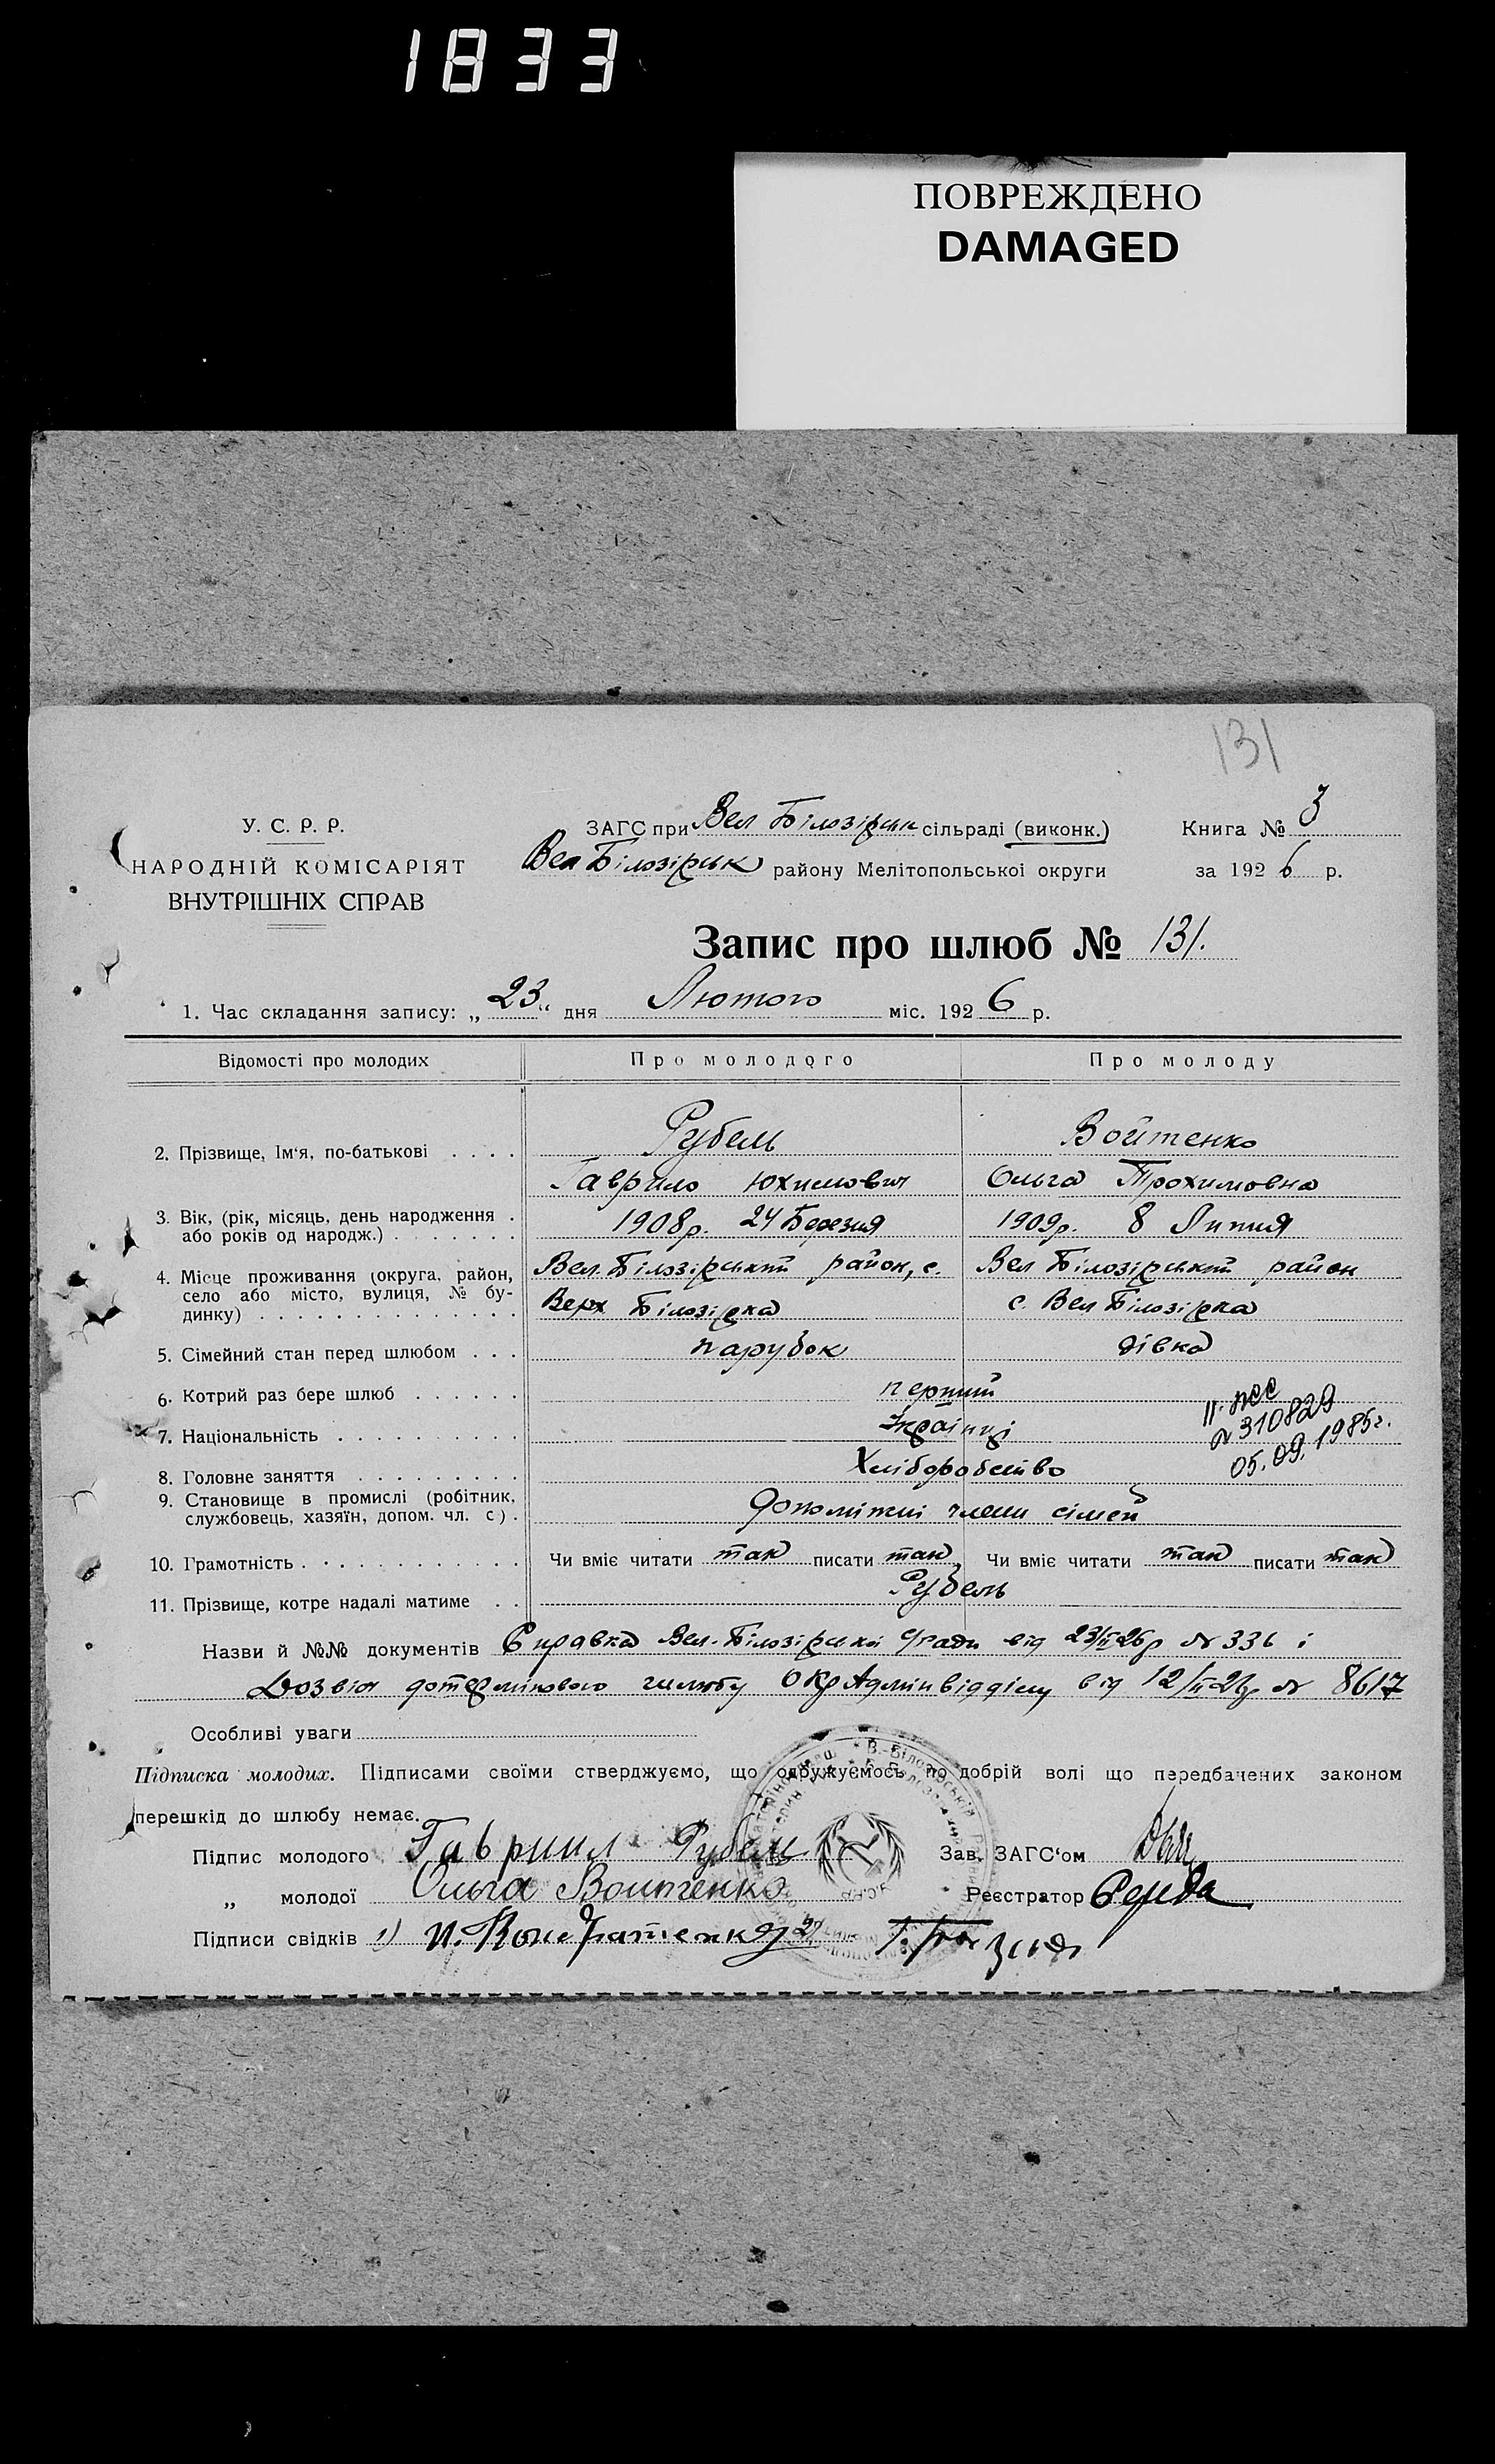 1833
ПОВРЕЖДЕНО
DAMAGED
131
У. С. Р. Р.
НАРОДНІЙ КОМІСАРІЯТ
ВНУТРІШНІХ СПРАВ
ЗАГС при Вел Білозірськ сільраді (виконк.)
Книга № 3
Вел Білозірськ району Мелітопольської округи
за 1926 р.
Запис про шлюб № 131.
1. Час складання запису: „23“ дня Лютого міс. 1926 р.
Відомості про молодих
Про молодого
Про молоду
2. Прізвище, Ім'я, по-батькові . . . .
Рубель
Войтенко
Гаврило Юхимович
Ольга Трохимовна
3. Вік, (рік, місяць, день народження .
або років од народж.) . . . . . . .
1908р. 24 Березня
1909р. 8 Липня
4. Місце проживання (округа, район,
село або місто, вулиця, № бу-
динку) . . . . . . . . . . . . . .
Вел. Білозірський район, с.
Верх Білозірка
Вел Білозірський район
с. Вел Білозірка
5. Сімейний стан перед шлюбом . . .
парубок
дівка
6. Котрий раз бере шлюб . . . . . .
перший
7. Національність . . . . . . . . . .
Українці
№ 310829
05.09.1985г.
8. Головне заняття . . . . . . . . .
Хліборобство
9. Становище в промислі (робітник,
службовець, хазяїн, допом. чл. с) .
допоміжні члени сімей
10. Грамотність . . . . . . . . . . . .
Чи вміє читати так писати так
Чи вміє читати так писати так
11. Прізвище, котре надалі матиме . .
Рубель
Назви й №№ документів Справка Вел.-Білозірської с/ради від 23/II 26р № 336 і
Дозвіл дотермінового шлюбу ОкрАдмінвідділу від 12/II 26р № 8617
Особливі уваги
Підписка молодих. Підписами своїми стверджуємо, що одружуємось по добрій волі що передбачених законом
перешкід до шлюбу немає.
Підпис молодого Гавриил Рубель
Зав. ЗАГС'ом
„ молодої Ольга Воитенко
Реєстратор Середа
Підписи свідків 1) И. Кондратенко 2)